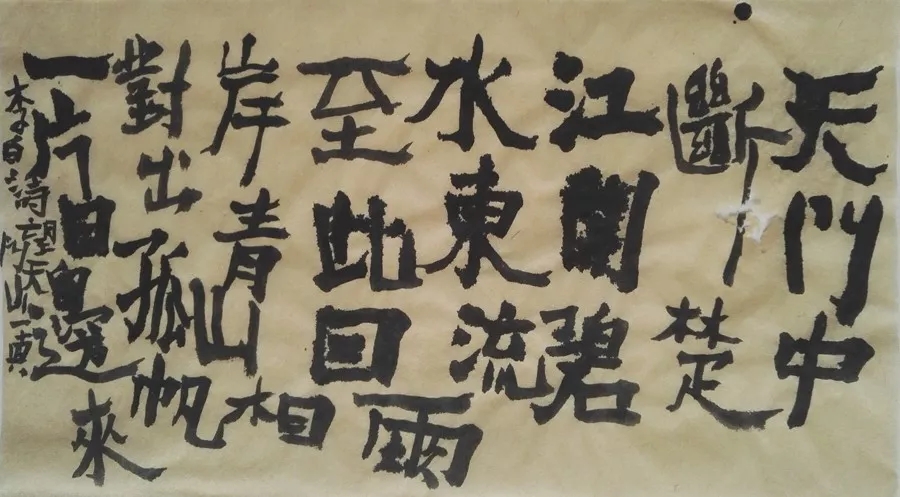 天門中
斷楚
江開碧
水東流
至此回兩
岸青山相
對出孤帆
一片日邊來
李白詩望天門山